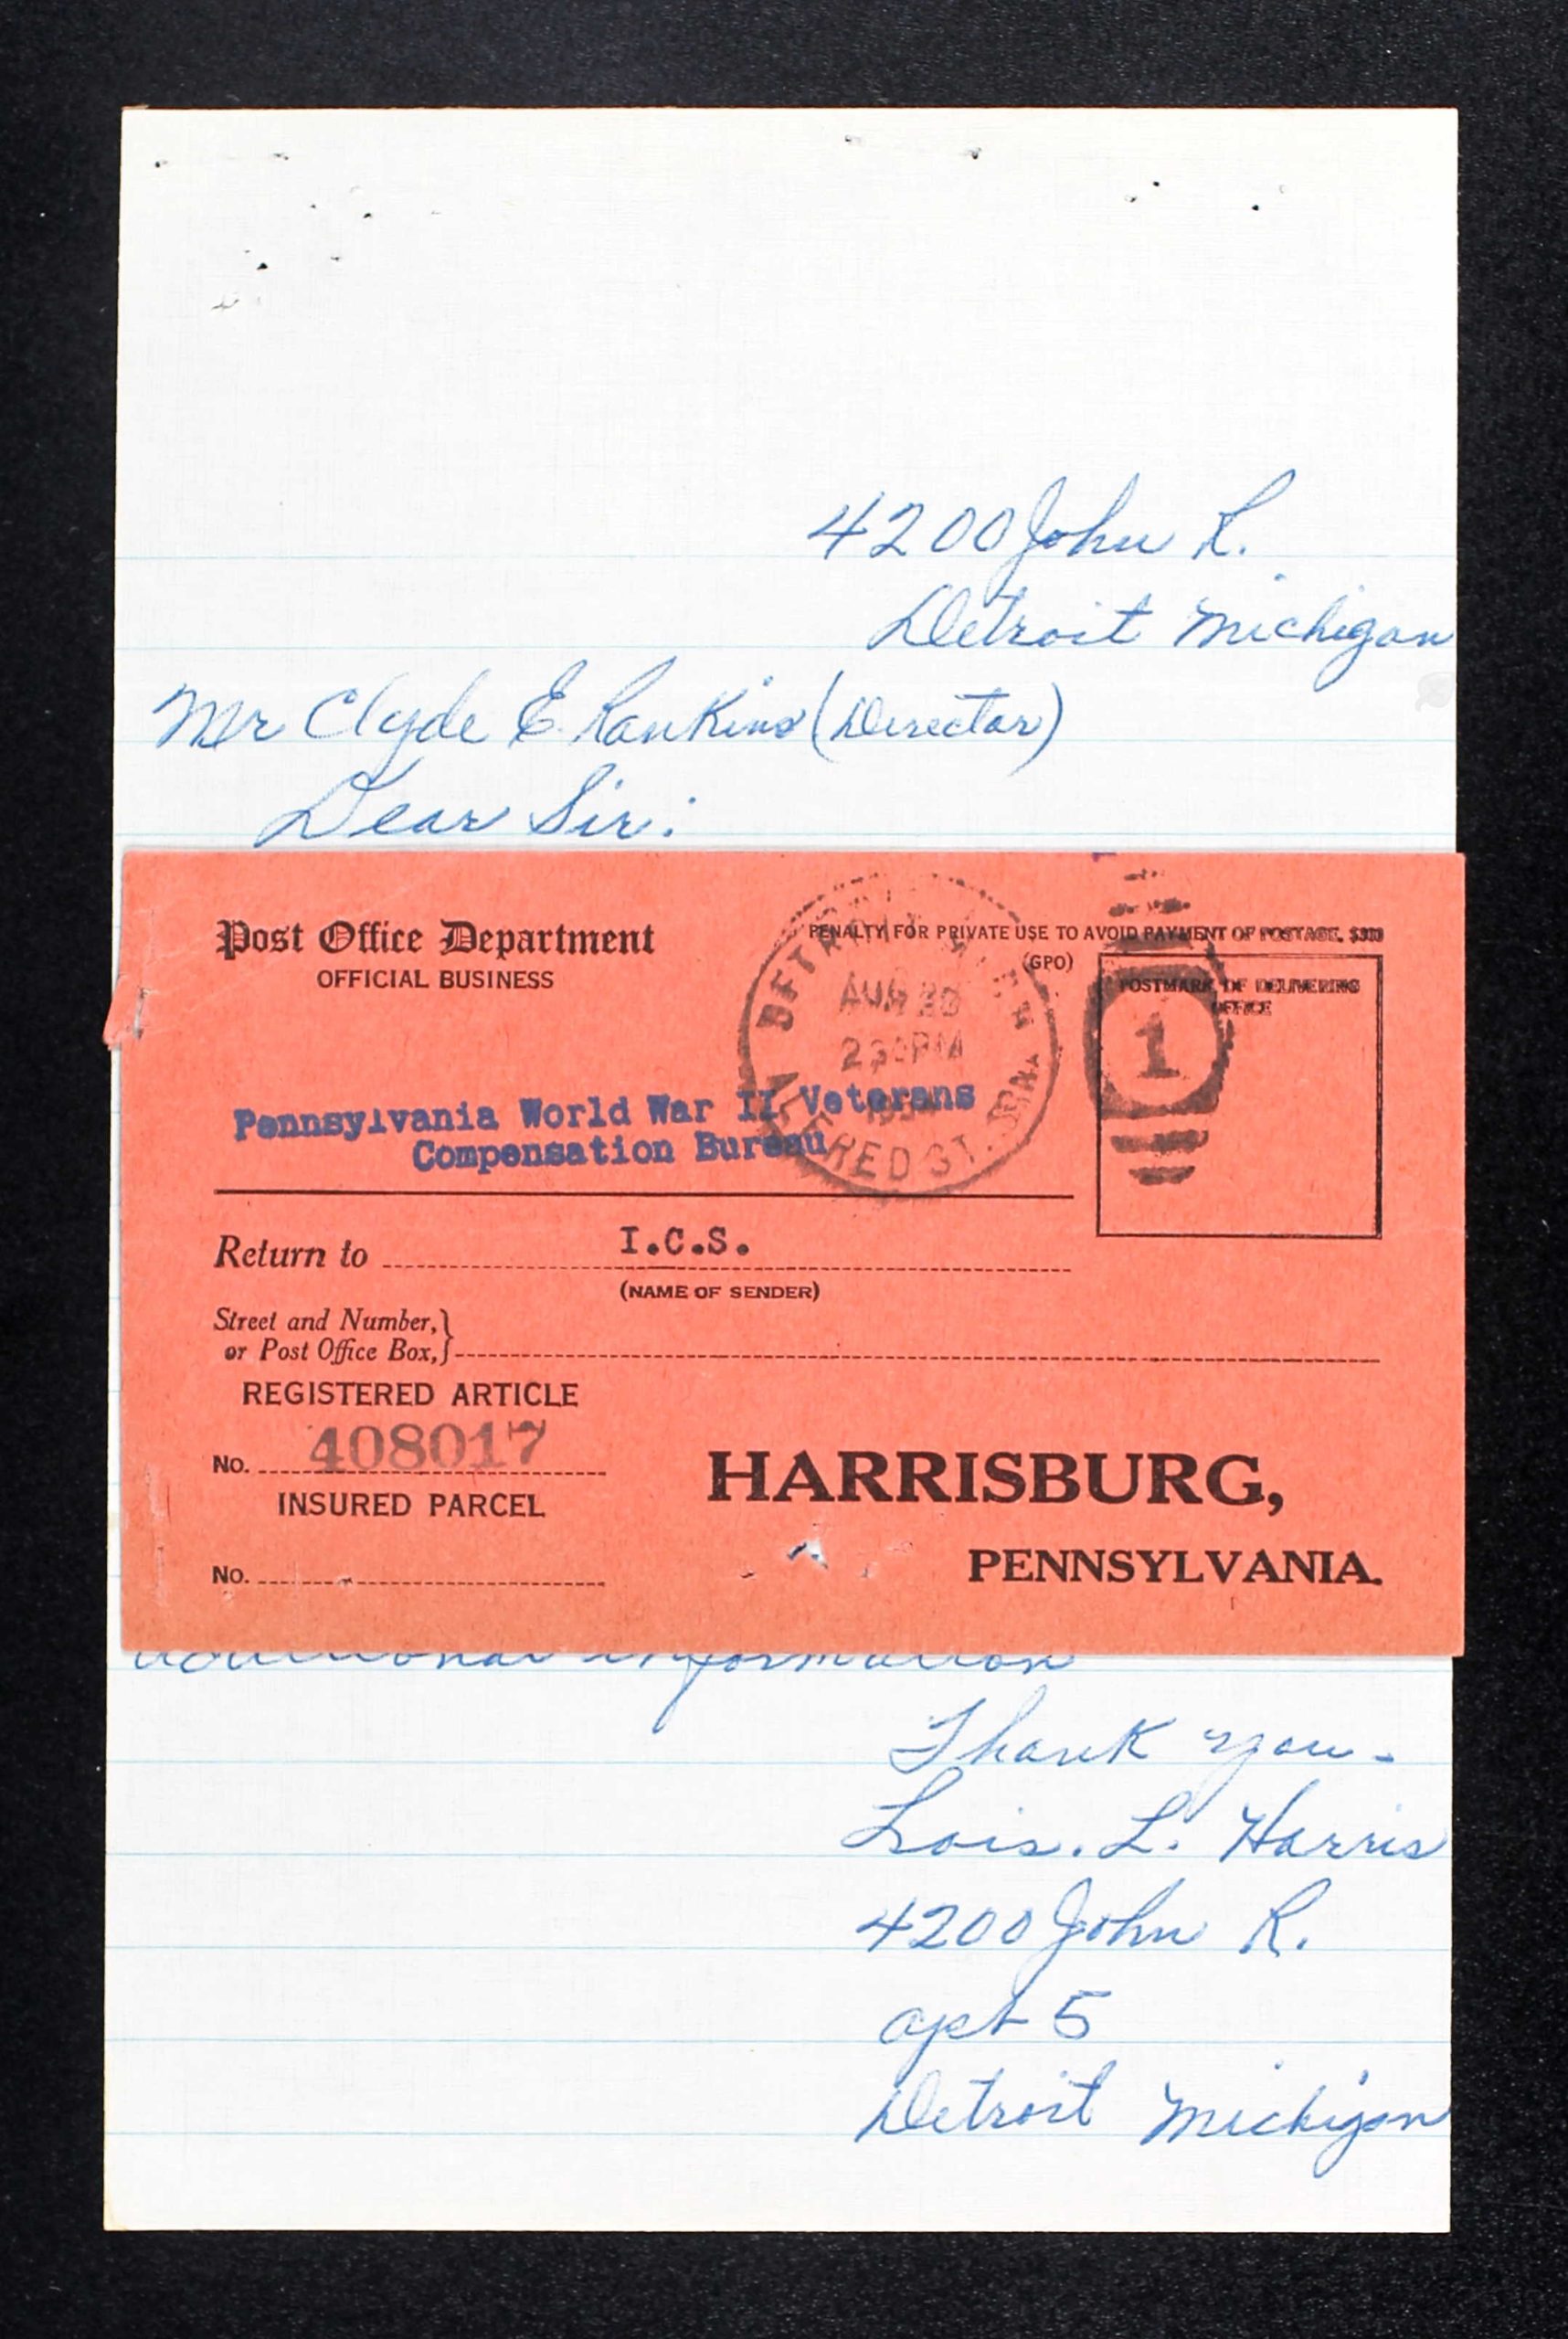 4200 John R.
Detroit Michigan
Mr Clyde E. Rankins (Director)
Dear Sir:
Post Office Department
OFFICIAL BUSINESS
PENALTY FOR PRIVATE USE TO AVOID PAYMENT OF POSTAGE, $300
(GPO)
POSTMARK OF DELIVERING
OFFICE
DETROIT
AUG
230PM
1
Pennsylvania World War II Veterans
Compensation Bureau
Return to I.C.S.
(NAME OF SENDER)
Street and Number,
or Post Office Box,
REGISTERED ARTICLE
No. 408017
INSURED PARCEL
No.
HARRISBURG,
PENNSYLVANIA.
additional information
Thank you -
Lois. L. Harris
4200 John R.
apt 5
Detroit Michigan